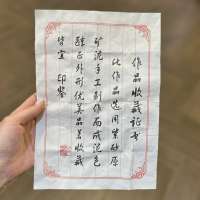 作品收藏证书
此作品选用紫砂原
矿泥手工制作而成泥色
纯正外形优美品茗收藏
皆宜 印鉴